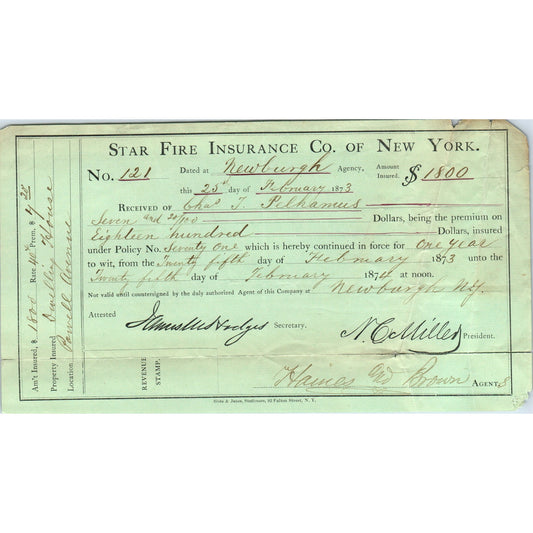 STAR FIRE INSURANCE CO. OF NEW YORK.
No. 121 Dated at Newburgh Agency, Amount Insured, $ 1800
this 25 day of February 1873
RECEIVED OF Chas T. Pelhamus
Seven and 20/100 Dollars, being the premium on
Eighteen hundred Dollars, insured
under Policy No. Seventy One which is hereby continued in force for One year
to wit, from the Twenty fifth day of February 1873 unto the
Twenty fifth day of February 1874 at noon.
Not valid until countersigned by the duly authorized Agent of this Company at Newburgh N.Y.
Attested
Hodges Secretary. N. C. Miller President.
REVENUE STAMP.
Haines and Brown AGENTS
& Jones, Stationers, 82 Fulton Street, N. Y.
Am't Insured, $ 1800 Rate 40 Prem. $ 7.20
Property Insured Dwelling House
Location, Powell Avenue